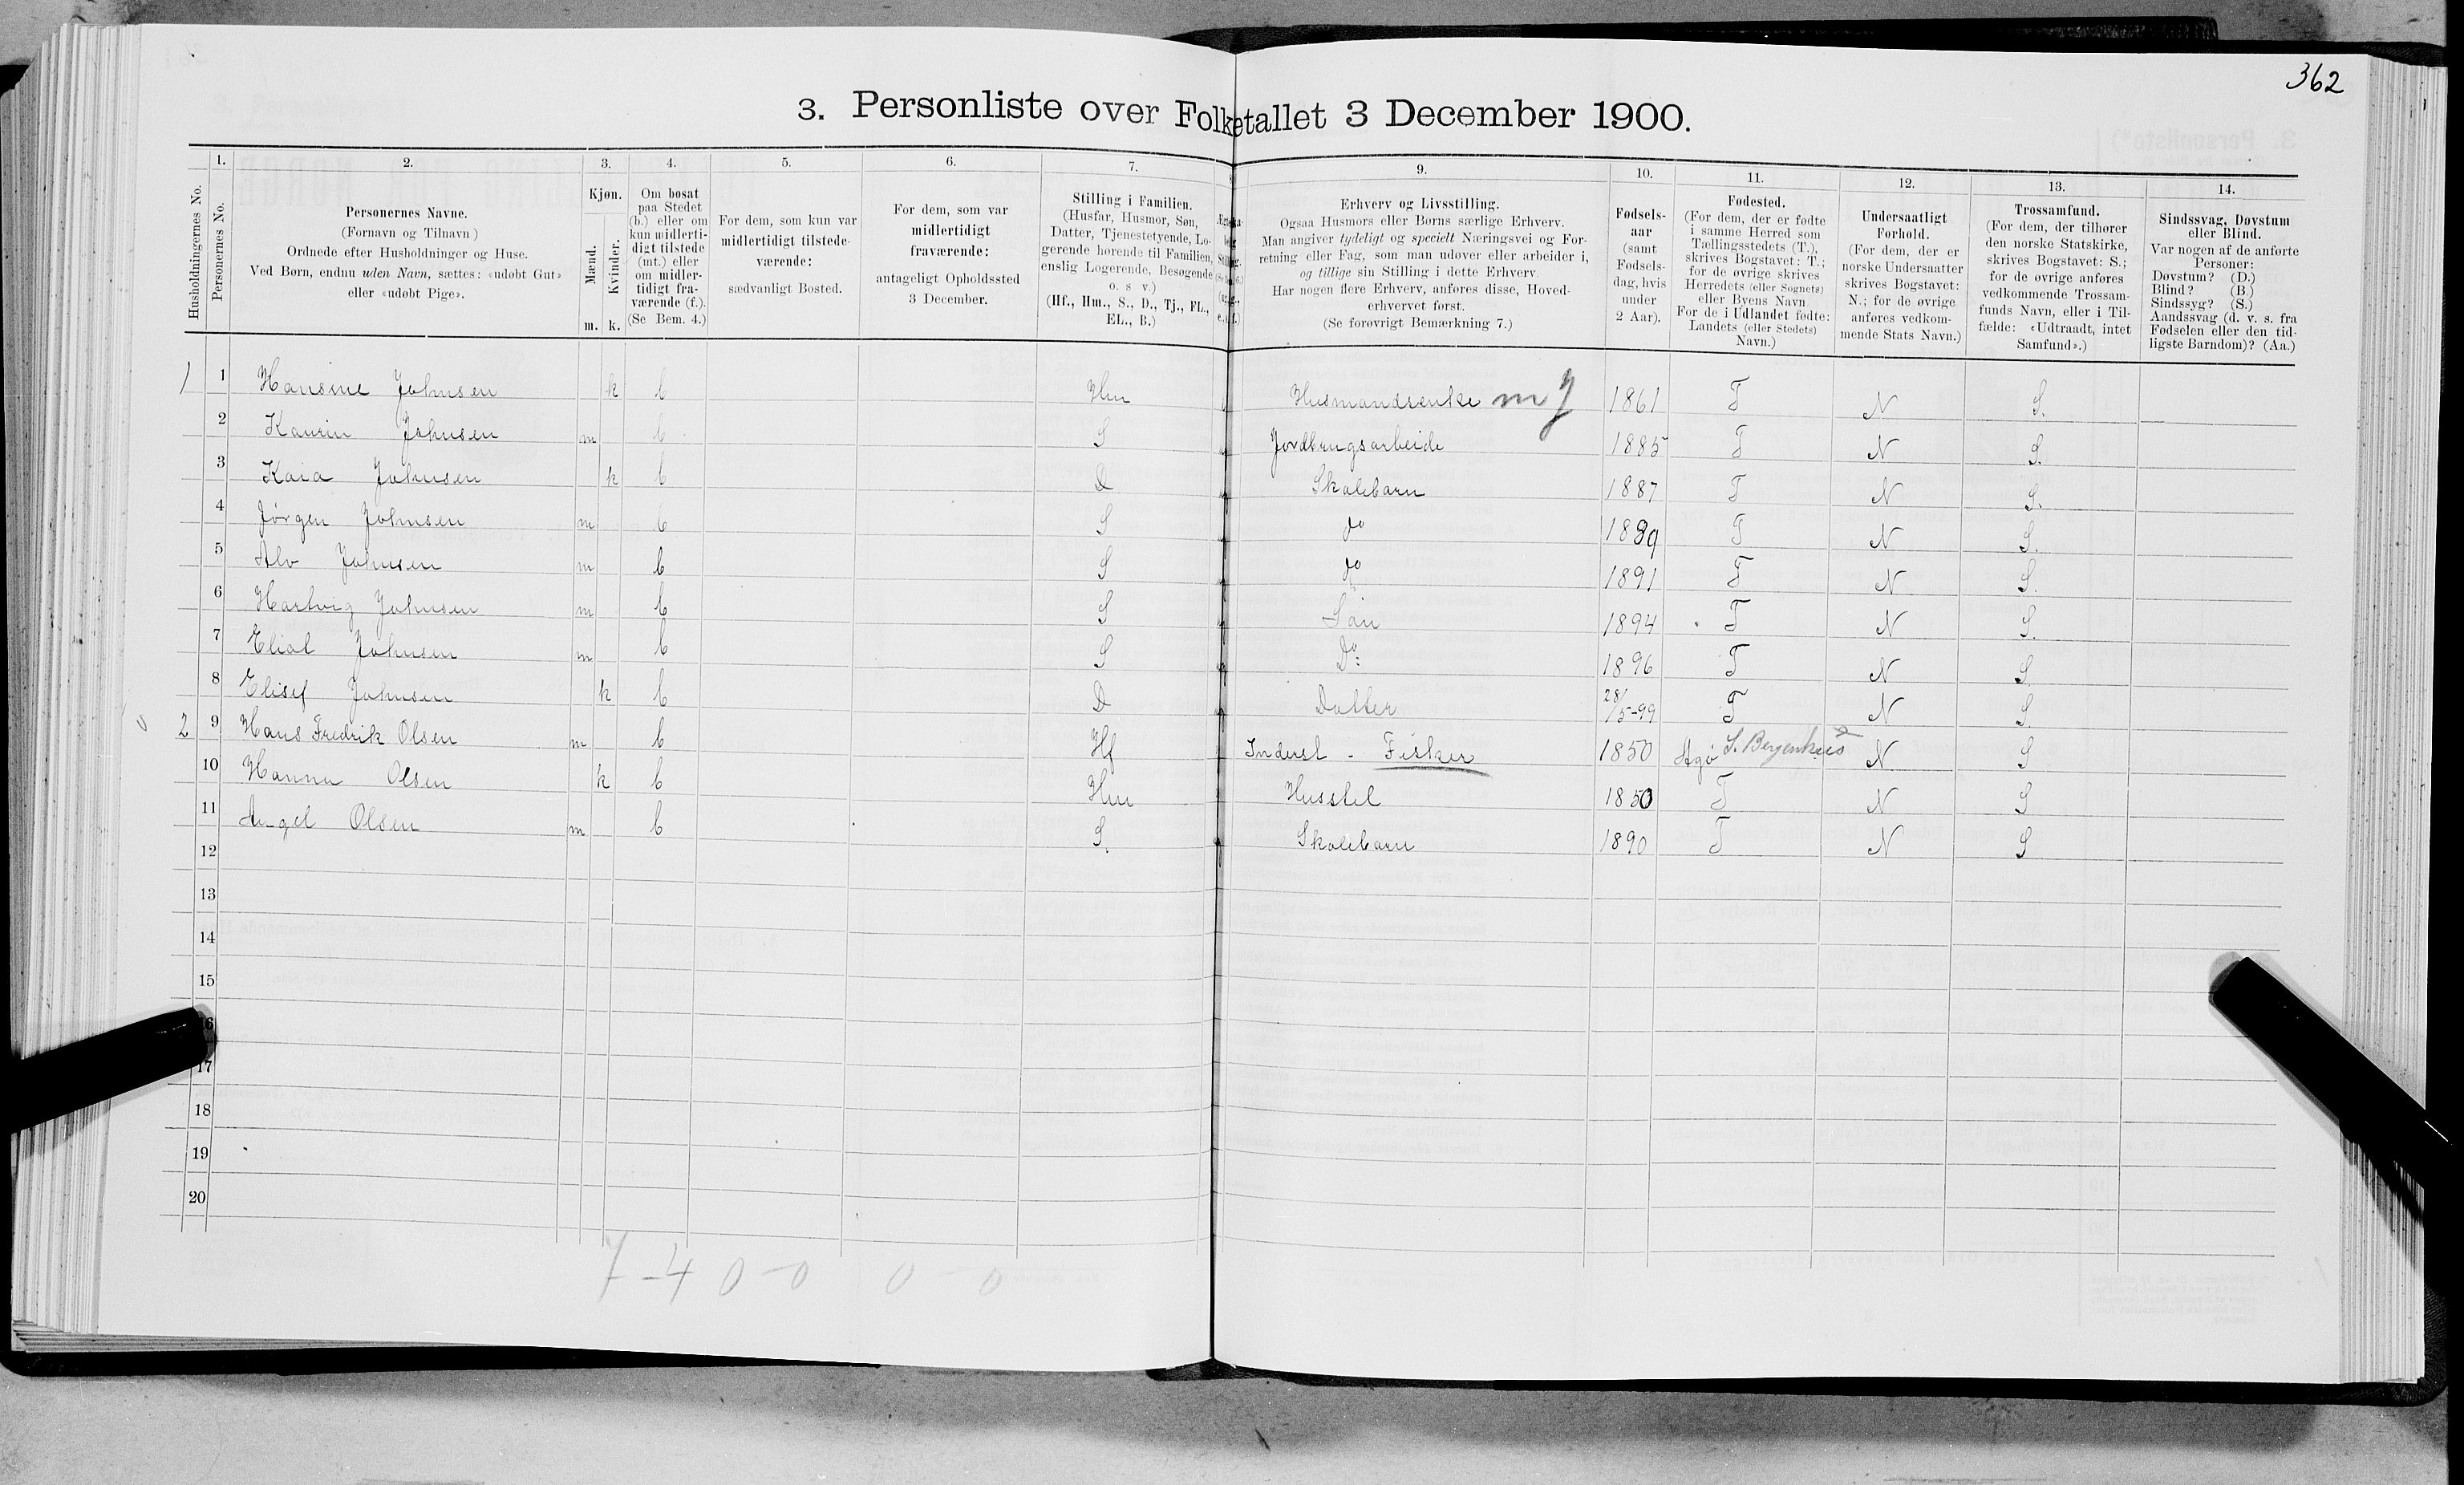 362
3. Personliste over Folketallet 3 December 1900.
1. 2. 3. 4. 5. 6. 7. 9. 10. 11. 12. 13. 14.
Husholdningernes No.
Personernes No.
Personernes Navne.
(Fornavn og Tilnavn)
Ordnede efter Husholdninger og Huse.
Ved Børn, endnu uden Navn, sættes: «udøbt Gut»
eller «udøbt Pige».
Kjøn.
Mænd.
Kvinder.
m. k.
Om bosat
paa Stedet
(b) eller om
kun midlerti-
digt tilstede
(mt.) eller
om midler-
tidigt fra-
værende (f.).
(Se Bem. 4.)
For dem, som kun var
midlertidigt tilstede-
værende:
sædvanligt Bosted.
For dem, som var
midlertidigt
fraværende:
antageligt Opholdssted
3 December.
Stilling i Familien.
(Husfar, Husmor, Søn,
Datter, Tjenestetyende, Lo-
gerende hørende til Familien,
enslig Logerende, Besøgende
o. s v.)
(Hf., Hm., S., D., Tj., FL.,
EL., B.)
Erhverv og Livsstilling.
Ogsaa Husmors eller Børns særlige Erhverv.
Man angiver tydeligt og specielt Næringsvei og For-
retning eller Fag, som man udøver eller arbeider i,
og tillige sin Stilling i dette Erhverv.
Har nogen flere Erhverv, anføres disse, Hoved-
erhvervet først.
(Se forøvrigt Bemærkning 7.)
Fødsels-
aar
(samt
Fødsels-
dag, hvis
under
2 Aar).
Fødested.
(For dem, der er fødte
i samme Herred som
Tællingsstedets (T.),
skrives Bogstavet: T.;
for de øvrige skrives
Herredets (eller Sognets)
eller Byens Navn
For de i Udlandet fødte:
Landets (eller Stedets)
Navn.)
Undersaatligt
Forhold.
(For dem, der er
norske Undersaatter
skrives Bogstavet:
N.; for de øvrige
anføres vedkom-
mende Stats Navn.)
Trossamfund.
(For dem, der tilhører
den norske Statskirke,
skrives Bogstavet: S.;
for de øvrige anføres
vedkommende Trossam-
funds Navn, eller i Til-
fælde: «Udtraadt, intet
Samfund».)
Sindssvag, Døvstum
eller Blind.
Var nogen af de anførte
Personer:
Døvstum? (D.)
Blind? (B.)
Sindssyg? (S.)
Aandssvag (d. v. s. fra
Fødselen eller den tid-
ligste Barndom)? (Aa.)
1 1 Hansine Johnsen k b Hm Husmandsenke m J 1861 T N S.
2 Johnsen m b S Jordbrugsarbeide 1885 T N S.
3 Kaia Johnsen k b D Skolebarn 1887 T N S.
4 Jørgen Johnsen m b S do 1889 T N S.
5 Alv Johnsen m b S do 1891 T N S.
6 Hartvig Johnsen m b S Søn 1894 T N S.
7 Johnsen m b S Do: 1896 T N S.
8 Elisef Johnsen k b D Datter 28/5-99 T N S.
2 9 Hans Fredrik Olsen m b Hf Inderst - Fisker 1850 S. Bergenhus N S
10 Hanna Olsen k b Hm Husstel 1850 T N S
11 Angel Olsen m b S. Skolebarn 1890 T N S
12
13
14
15
16
17
18
19
20
7-4 0-0 0 0